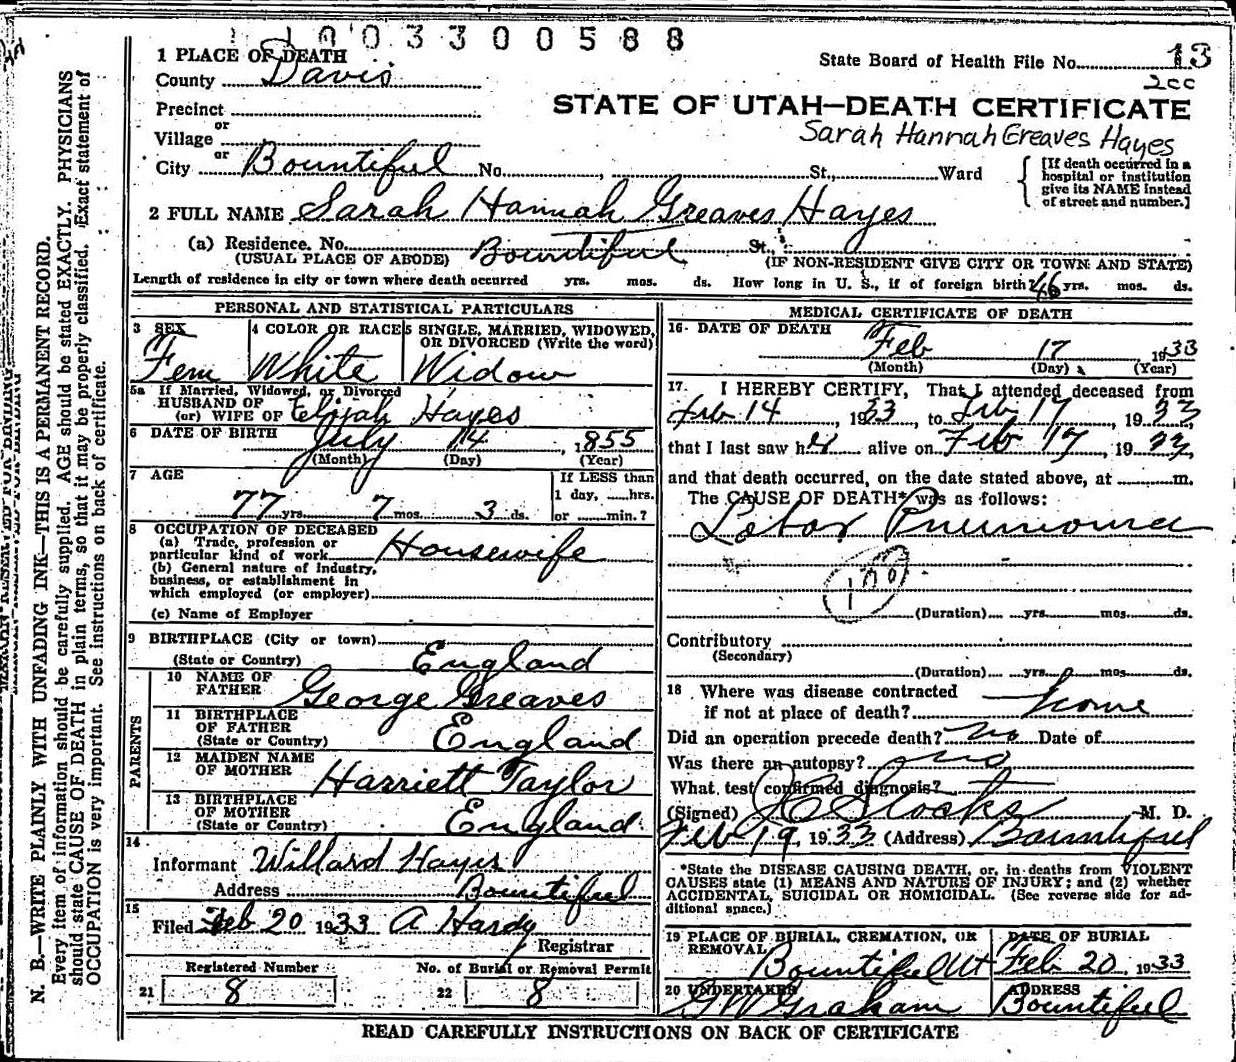 1003300588
1 PLACE OF DEATH
State Board of Health File No. 13
County Davis
2cc
Precinct
STATE OF UTAH—DEATH CERTIFICATE
or
Village
Sarah Hannah Greaves Hayes
or
City Bountiful No. , St., Ward
[If death occurred in a
hospital or institution
give its NAME instead
of street and number.]
2 FULL NAME Sarah Hannah Greaves Hayes
(a) Residence. No. Bountiful St.,
(USUAL PLACE OF ABODE) (IF NON-RESIDENT GIVE CITY OR TOWN AND STATE)
Length of residence in city or town where death occurred yrs. mos. ds. How long in U. S., if of foreign birth? 46 yrs. mos. ds.
PERSONAL AND STATISTICAL PARTICULARS
3 SEX
Fem
4 COLOR OR RACE
White
5 SINGLE, MARRIED, WIDOWED,
OR DIVORCED (Write the word)
Widow
5a If Married, Widowed, or Divorced
HUSBAND OF
(or) WIFE OF Elijah Hayes
6 DATE OF BIRTH July 14 , 1855
(Month) (Day) (Year)
7 AGE
77 yrs. 7 mos. 3 ds.
If LESS than
1 day, hrs.
or min.?
8 OCCUPATION OF DECEASED
(a) Trade, profession or
particular kind of work Housewife
(b) General nature of industry,
business, or establishment in
which employed (or employer)
(c) Name of Employer
9 BIRTHPLACE (City or town)
(State or Country) England
PARENTS
10 NAME OF
FATHER George Greaves
11 BIRTHPLACE
OF FATHER
(State or Country) England
12 MAIDEN NAME
OF MOTHER Harriett Taylor
13 BIRTHPLACE
OF MOTHER
(State or Country) England
14
Informant Willard Hayes
Address Bountiful
15
Filed Feb 20 1933 A Hardy
Registrar
Registered Number No. of Burial or Removal Permit
21 8 22 8
MEDICAL CERTIFICATE OF DEATH
16 DATE OF DEATH
Feb 17 , 1933
(Month) (Day) (Year)
17. I HEREBY CERTIFY, That I attended deceased from
Feb 14 1933, to Feb 17, 1933,
that I last saw her alive on Feb 17, 1933,
and that death occurred, on the date stated above, at m.
The CAUSE OF DEATH* was as follows:
Lobar Pneumonia
(Duration) yrs. mos. ds.
Contributory
(Secondary)
(Duration) yrs. mos. ds.
18 Where was disease contracted
if not at place of death? home
Did an operation precede death? no Date of
Was there an autopsy? no
What test confirmed diagnosis?
(Signed) J C Stocks M. D.
Feb 19, 1933 (Address) Bountiful
*State the DISEASE CAUSING DEATH, or, in deaths from VIOLENT
CAUSES state (1) MEANS AND NATURE OF INJURY; and (2) whether
ACCIDENTAL, SUICIDAL OR HOMICIDAL. (See reverse side for ad-
ditional space.)
19 PLACE OF BURIAL, CREMATION, OR
REMOVAL
Bountiful Ut
DATE OF BURIAL
Feb 20 1933
20 UNDERTAKER
G W Graham
ADDRESS
Bountiful
READ CAREFULLY INSTRUCTIONS ON BACK OF CERTIFICATE
N. B.—WRITE PLAINLY WITH UNFADING INK—THIS IS A PERMANENT RECORD.
Every item of information should be carefully supplied. AGE should be stated EXACTLY. PHYSICIANS
should state CAUSE OF DEATH in plain terms, so that it may be properly classified. Exact statement of
OCCUPATION is very important. See instructions on back of certificate.